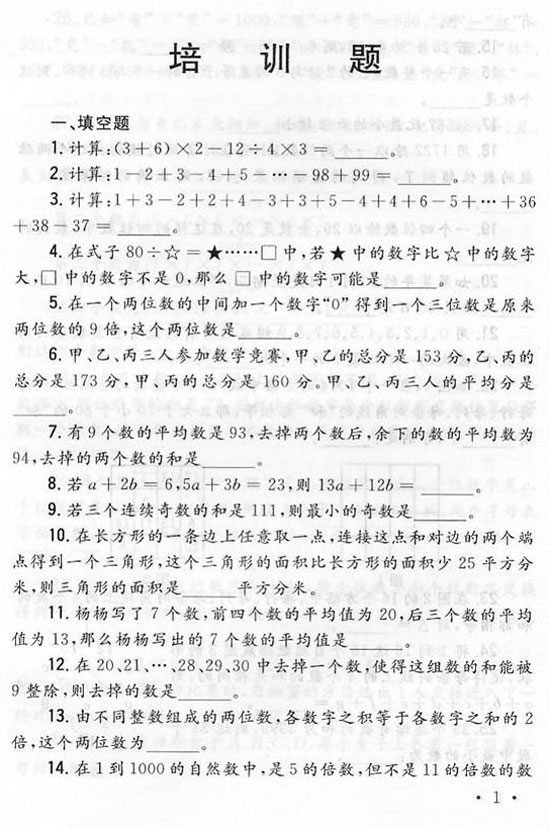 培 训 题
一、填空题
1. 计算:(3+6)×2-12÷4×3=______。
2. 计算:1+2+3-4+5-…-98+99=______。
3. 计算:1+3-2+2+4-3+3+5-4+4+6-5+…+36
+38-37=______。
4. 在式子80÷☆=★……□中,若★中的数字比☆中的数字
大,□中的数字不是0,那么□中的数字可能是______。
5. 在一个两位数的中间加一个数字“0”得到一个三位数是原来
两位数的9倍,这个两位数是______。
6. 甲、乙、丙三人参加数学竞赛,甲、乙的总分是153分,乙、丙的
总分是173分,甲、丙的总分是160分。甲、乙、丙三人的平均分是
______。
7. 有9个数的平均数是93,去掉两个数后,余下的数的平均数为
94,去掉的两个数的和是______。
8. 若a+2b=6,5a+3b=23,则13a+12b=______。
9. 若三个连续奇数的和是111,则最小的奇数是______。
10. 在长方形的一条边上任意取一点,连接这点和对边的两个端
点得到一个三角形,这个三角形的面积比长方形的面积少25平方分
米,则三角形的面积是______平方分米。
11. 杨杨写了7个数,前四个数的平均值为20,后三个数的平均
值为13,那么杨杨写出的7个数的平均值是______。
12. 在20、21、…、28、29、30中去掉一个数,使得这组数的和能被
9整除,则去掉的数是______。
13. 由不同整数组成的两位数,各数字之积等于各数字之和的2
倍,这个两位数为______。
14. 在1到1000的自然数中,是5的倍数,但不是11的倍数的数
· 1 ·